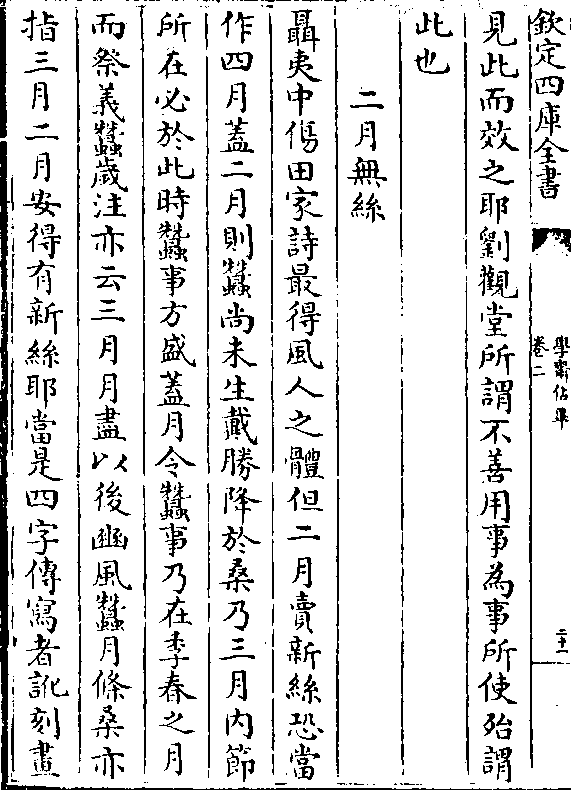 欽定四庫全書
學齋佔畢
卷二
二十一
見此而效之耶劉觀堂所謂不善用事為事所使殆謂
此也
二月無絲
聶夷中傷田家詩最得風人之體但二月賣新絲恐當
作四月蓋二月則蠶尚未生戴勝降於桑乃三月内節
所在必於此時蠶事方盛蓋月令蠶事乃在季春之月
而祭義蠶歲注亦云三月月盡以後豳風蠶月條桑亦
指三月二月安得有新絲耶當是四字傳寫者訛刻畫